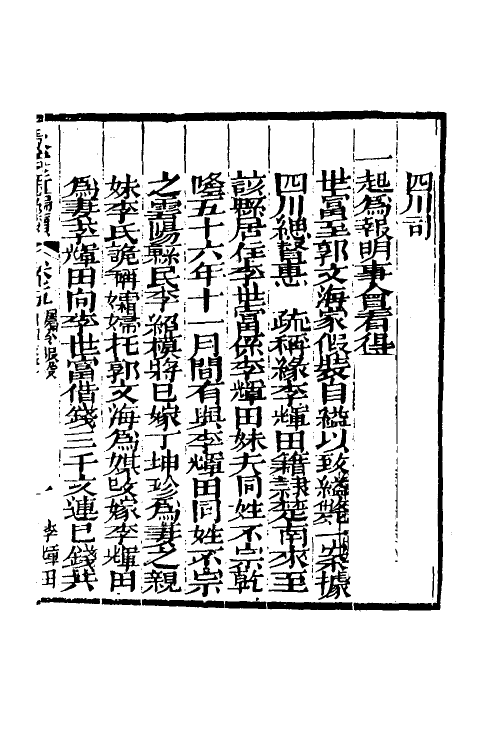 四川司
一起爲報明事會看得
世富至郭文海家假裝自縊以致縊斃一案據
四川總督惠 疏稱緣李輝田籍隸楚南來至
該縣居住李世富係李輝田妹夫同姓不宗乾
隆五十六年十一月間有與李輝田同姓不宗
之雲陽縣民李紹模將已嫁丁坤珍爲妻之親
妹李氏詭稱孀婦托郭文海爲媒改嫁李輝田
爲妻李輝田向李世富借錢三千文連已錢共
李輝田